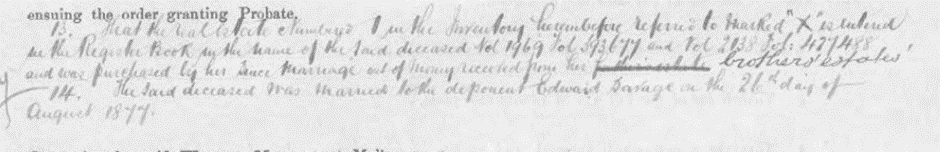 ensuing the order granting Probate.
13. That the real Estate Numbered 1 in the Inventory hereinbefore referred to marked "X" is entered
in the Register Book in the name of the said deceased Vol 1969 Fol 393677 and Vol 2138 Fol: 427488
and was purchased by her since marriage out of money received from her brothers' estates
14. The said deceased was married to the deponent Edward Savage on the 26th day of
August 1877.